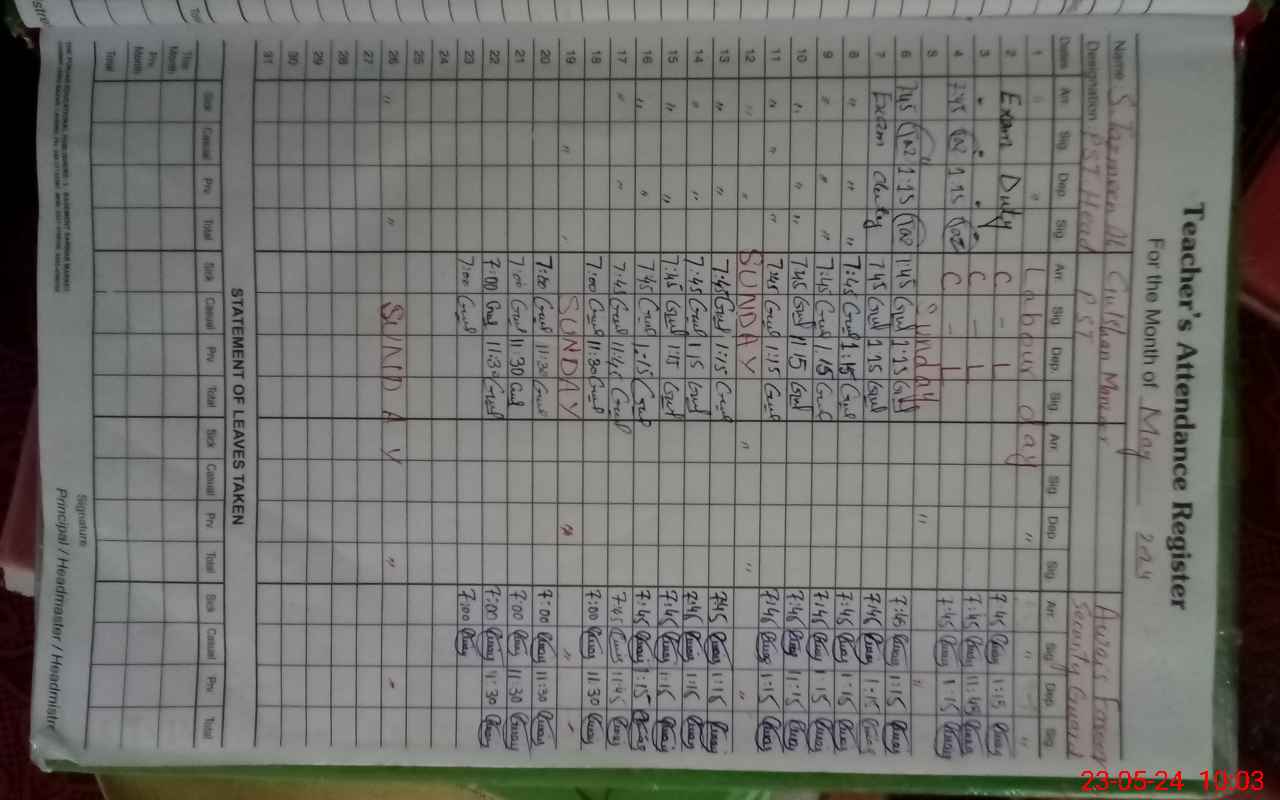 Teacher's Attendance Register
For the Month of May 2024
Name S. Tasmeen Gulshan Manzoor
Designation PST Head PST Security Guard
Date Arr Sig Dep. Sig Arr Sig Dep. Sig Arr Sig Dep. Sig Arr Sig Dep. Sig
1 " " Labour day " " "
2 Exam Duty C - L 7:45 1:15
3 " " C - L 7:45 11:45
4 7:45 1:15 C - L 7:45 1:15
5 " Sunday " "
6 7:45 1:15 1:45 Gul 1:15 Gul 7:45 1:15
7 Exam duty 7:45 Gul 1:15 Gul 7:45 1:15
8 " " " 7:45 Gul 1:15 Gul 7:45 1:15
9 " " " 7:45 Gul 1:15 Gul 7:45 1:15
10 " " " 7:45 Gul 11:15 Gul 7:45 11:15
11 " " " 7:45 Gul 1:15 Gul 7:45 1:15
12 " " SUNDAY " " "
13 " " 7:45 Gul 1:15 Gul 7:45 1:15
14 " " 7:45 Gul 1:15 Gul 7:45 1:15
15 " " 7:45 Gul 1:15 Gul 7:45 1:15
16 " " 7:45 Gul 1:15 Gul 7:45 1:15
17 " " 7:45 Gul 11:45 Gul 7:45 11:45
18 7:00 Gul 11:30 Gul 7:00 11:30
19 " " SUNDAY " "
20 7:00 Gul 11:30 Gul 7:00 11:30
21 7:00 Gul 11:30 Gul 7:00 11:30
22 7:00 Gul 11:30 Gul 7:00 11:30
23 7:00 Gul 7:00
24
25
26 " " SUNDAY " "
27
28
29
30
31
STATEMENT OF LEAVES TAKEN
Sick Casual Prv Total Sick Casual Prv Total Sick Casual Prv Total Sick Casual Prv Total
This Month
Prv. Month
Total
Signature
Principal / Headmaster / Headmistr
23-05-24 10:03